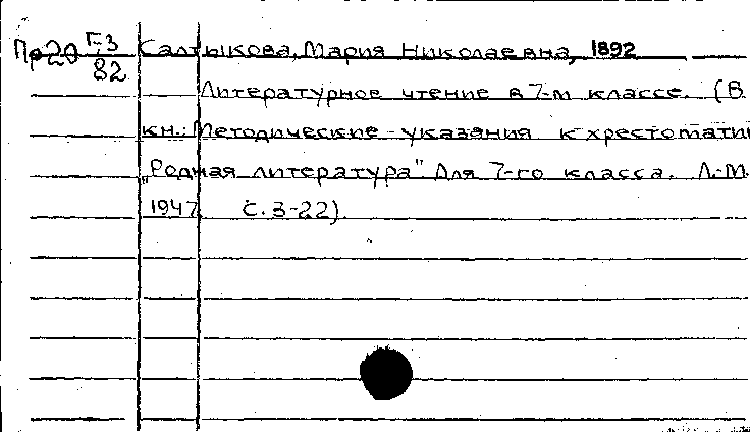 Пр20 Г,3 Салтыкова, Мария Николаевна, 1892
82
Литературное чтение в 7-м классе. (В
кн.: Методические указания к хрестоматии
"Родная литература" для 7-го класса. Л.-М.
1947 С. 3-22).